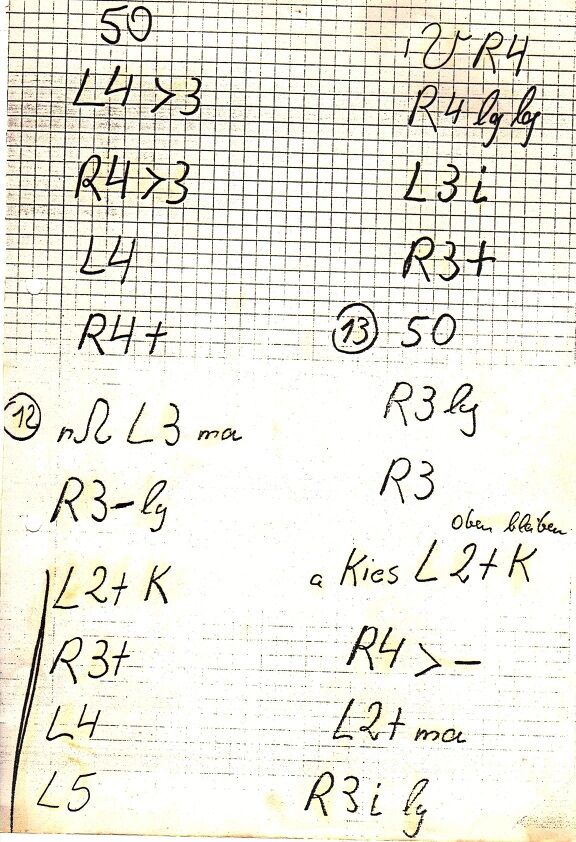 50
L4 >3
R4 >3
L4
R4+
⑫ nΩ L3 ma
R3- lg
L2+ K
R3+
L4
L5
R4
R4 lg lg
L3 i
R3+
⑬ 50
R3 lg
R3
oben bleiben
a Kies L2+K
R4 > -
L2+ ma
R3 i lg